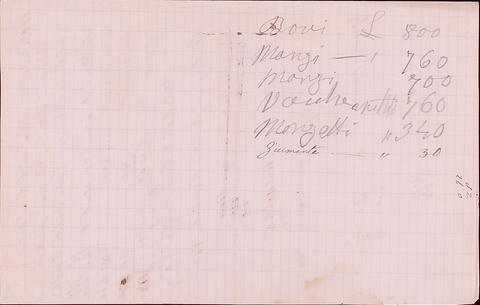 Bovi £ 800
Manzi — " 760
Manzi 700
Vacche 760
Manzetti " 340
Giumenta — " 30